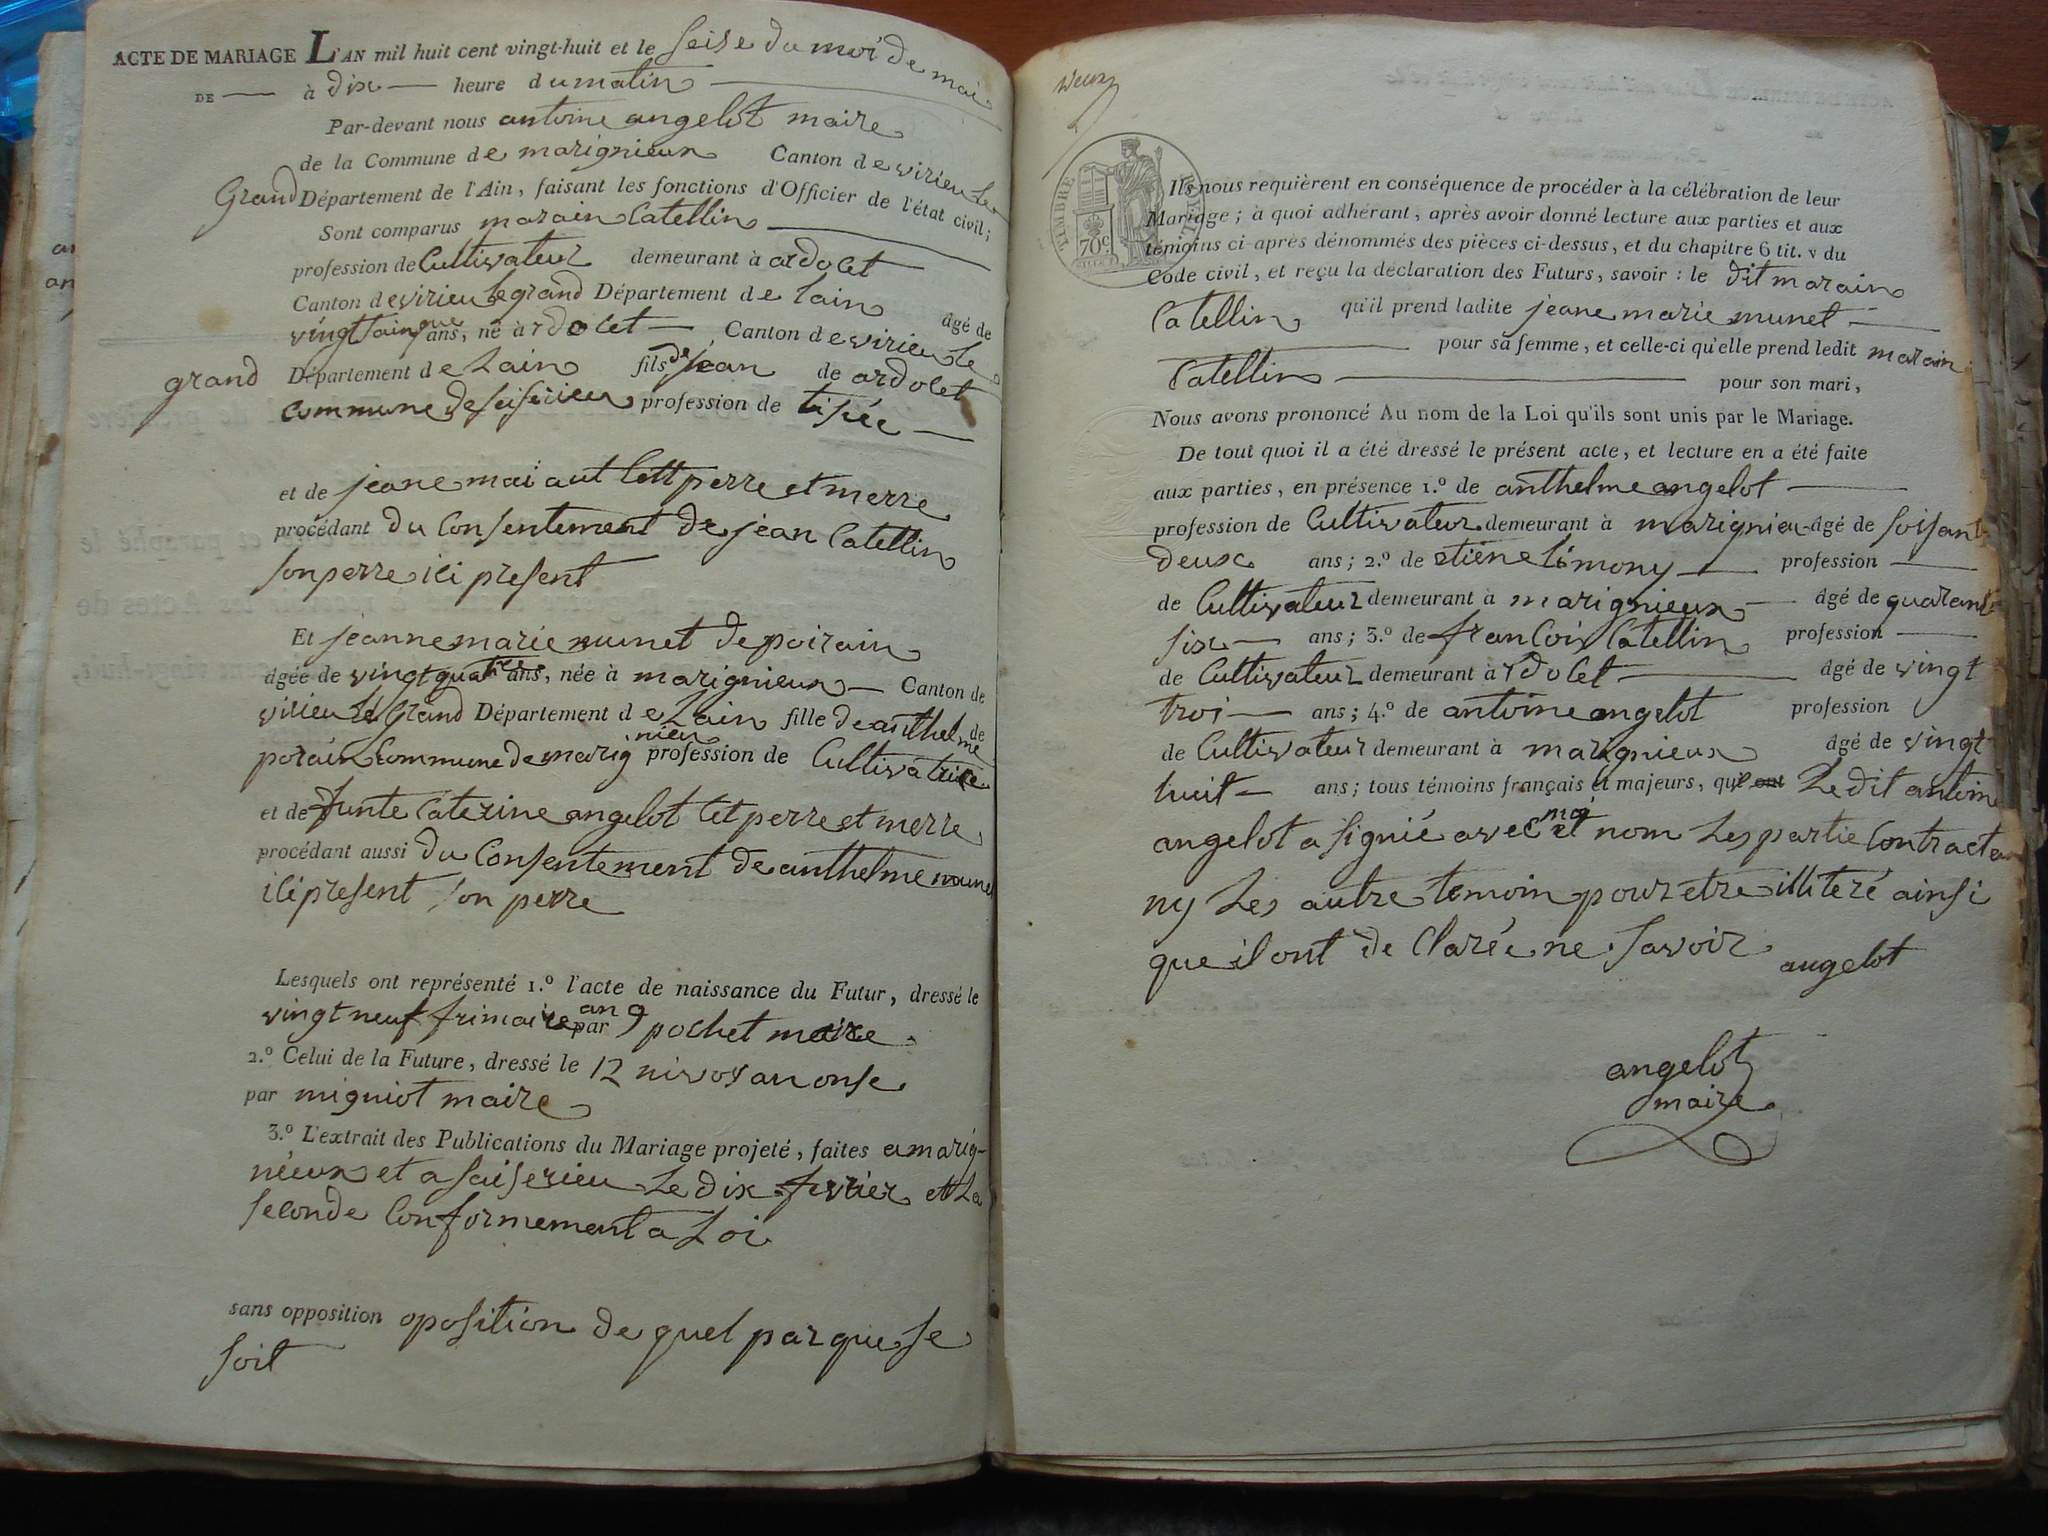 ACTE DE MARIAGE L'AN mil huit cent vingt-huit et le seise du moi de mai
DE — à dix — heure du matin
Par-devant nous antoine angelot maire
de la Commune de marignieux Canton de virieu le
Grand Département de l'Ain, faisant les fonctions d'Officier de l'état civil;
Sont comparus marain Catellin
profession de Cultivateur demeurant à ardolet
Canton de virieu le grand Département de lain âgé de
vingt sainque ans, né à rdolet — Canton de virieu le
grand Département de Lain fils de jean de ardolet
commune de seiserieu profession de tiseé —
et de jeane mai aut lett perre et merre
procédant du Consentement de jean Catellin
son perre ici present
Et jeanne marie munet de poirain
âgée de vingt quatre ans, née à marignieux — Canton de
virieu le Grand Département de Lain fille de anthelme de
porain Commune de marignieu profession de Cultivatrice
et de funte Caterine angelot let perre et merre
procédant aussi du Consentement de anthelme munet
ici present son perre
Lesquels ont représenté 1.º l'acte de naissance du Futur, dressé le
vingt neuf frimaire an 9 par pochet maire
2.º Celui de la Future, dressé le 12 nivos an onse
par migniot maire
3.º L'extrait des Publications du Mariage projeté, faites a marig-
nieux et a saiserieu Le dix fevrier et La
seconde Conformement a Loi
sans opposition oposition de quel par que se
soit
TIMBRE ROYAL
70c
Ils nous requièrent en conséquence de procéder à la célébration de leur
Mariage; à quoi adhérant, après avoir donné lecture aux parties et aux
témoins ci-après dénommés des pièces ci-dessus, et du chapitre 6 tit. v du
Code civil, et reçu la déclaration des Futurs, savoir: le dit marain
Catellin qu'il prend ladite jeane marie munet —
pour sa femme, et celle-ci qu'elle prend ledit marain
Catellin — pour son mari,
Nous avons prononcé Au nom de la Loi qu'ils sont unis par le Mariage.
De tout quoi il a été dressé le présent acte, et lecture en a été faite
aux parties, en présence 1.º de anthelme angelot —
profession de Cultivateur demeurant à marignieu âgé de soisante
deux ans; 2.º de etiene limony — profession —
de Cultivateur demeurant à marignieux — âgé de quarante
six — ans; 3.º de francois Catellin profession —
de Cultivateur demeurant à rdolet — âgé de vingt
troi — ans; 4.º de antoine angelot profession
de Cultivateur demeurant à marignieux âgé de vingt
huit — ans; tous témoins français et majeurs, qui ont Ledit antoine
angelot a signié avec moi et nom Les partie Contractan
ny Les autre temoin pour etre illiteré ainsi
que il ont de Claréé ne savoir
angelot
angelot
maire